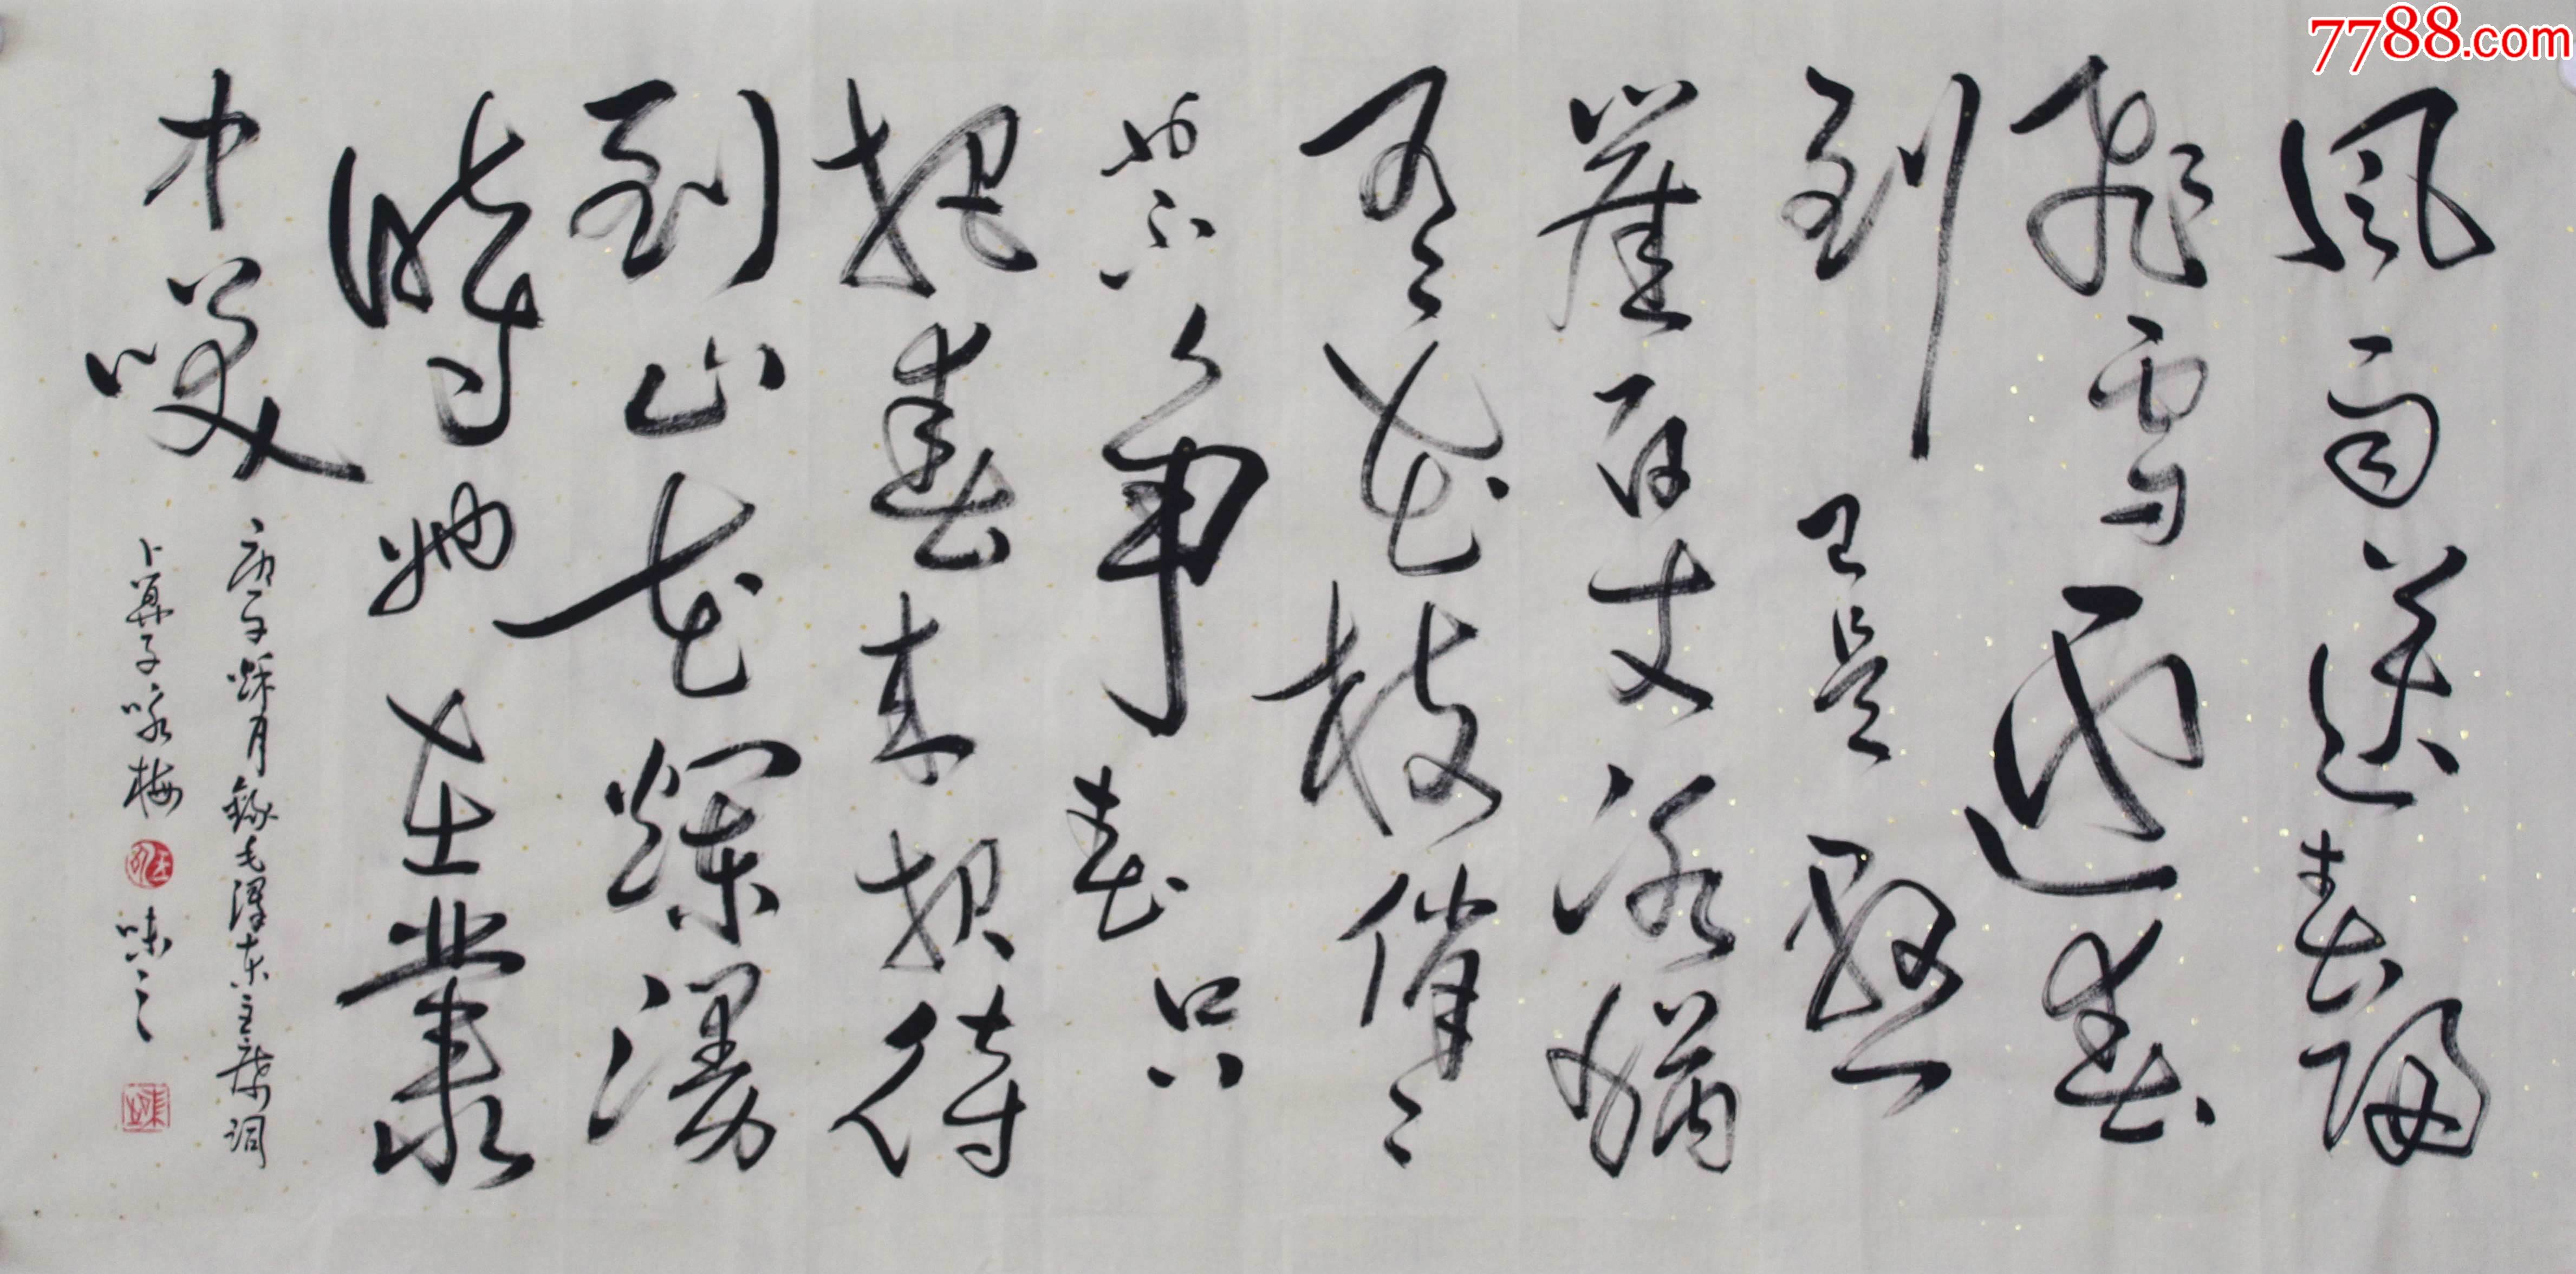 7788.com
風雨送春歸
飛雪迎春
到已是懸
崖百丈冰猶
有花枝俏〻
也不争春只
把春来报待
到山花爛漫
時她在叢
中咲
庚子秌月錄毛澤東主席詞
卜算子咏梅